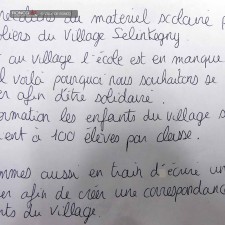 du matériel scolaire
du Village Selinkegny
au village l'école est en manque
voilà pourquoi nous souhaitons se
afin d'être solidaire.
les enfants du village
à 100 élèves par classe.
aussi en train d'écrire
afin de créer une correspondance
du village.